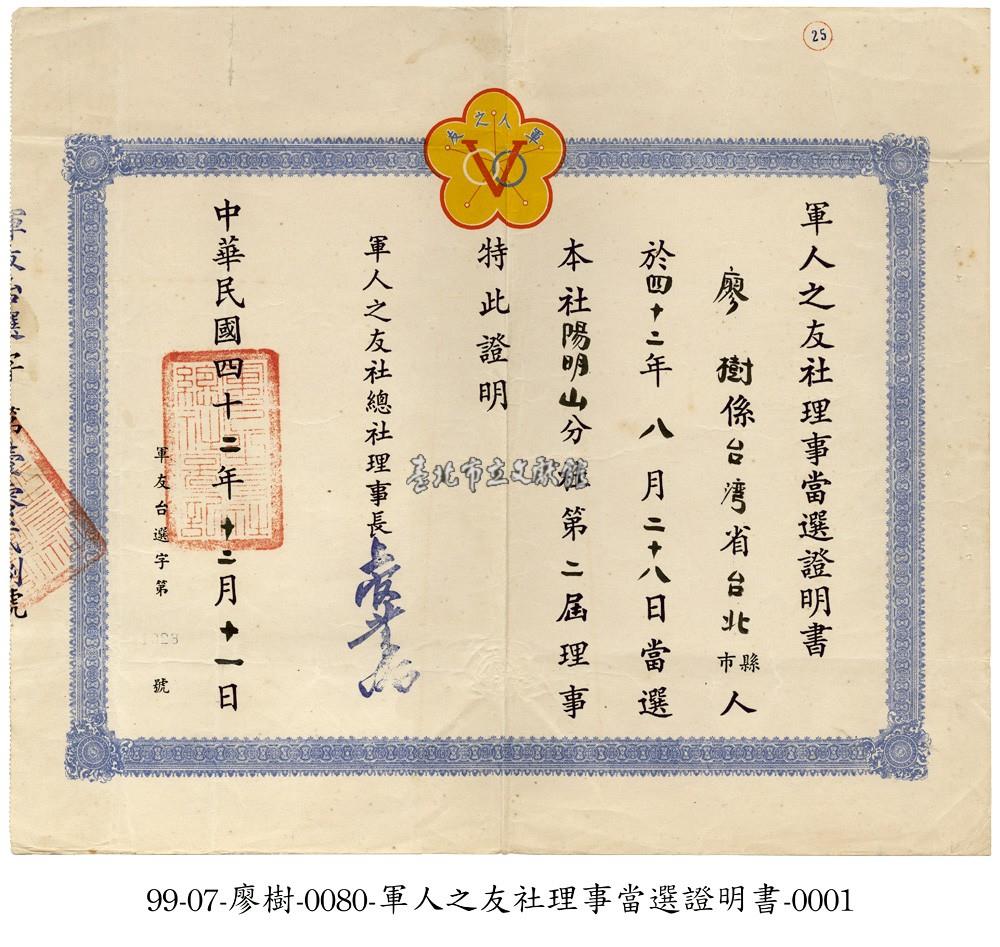 25
軍人之友
軍人之友社理事當選證明書
廖樹係台灣省台北縣市人
於四十二年八月二十八日當選
本社陽明山分社第二屆理事
特此證明
軍人之友社總社理事長
中華民國四十二年十二月十一日
軍友台選字第1028號
臺北市立文獻館
99-07-廖樹-0080-軍人之友社理事當選證明書-0001